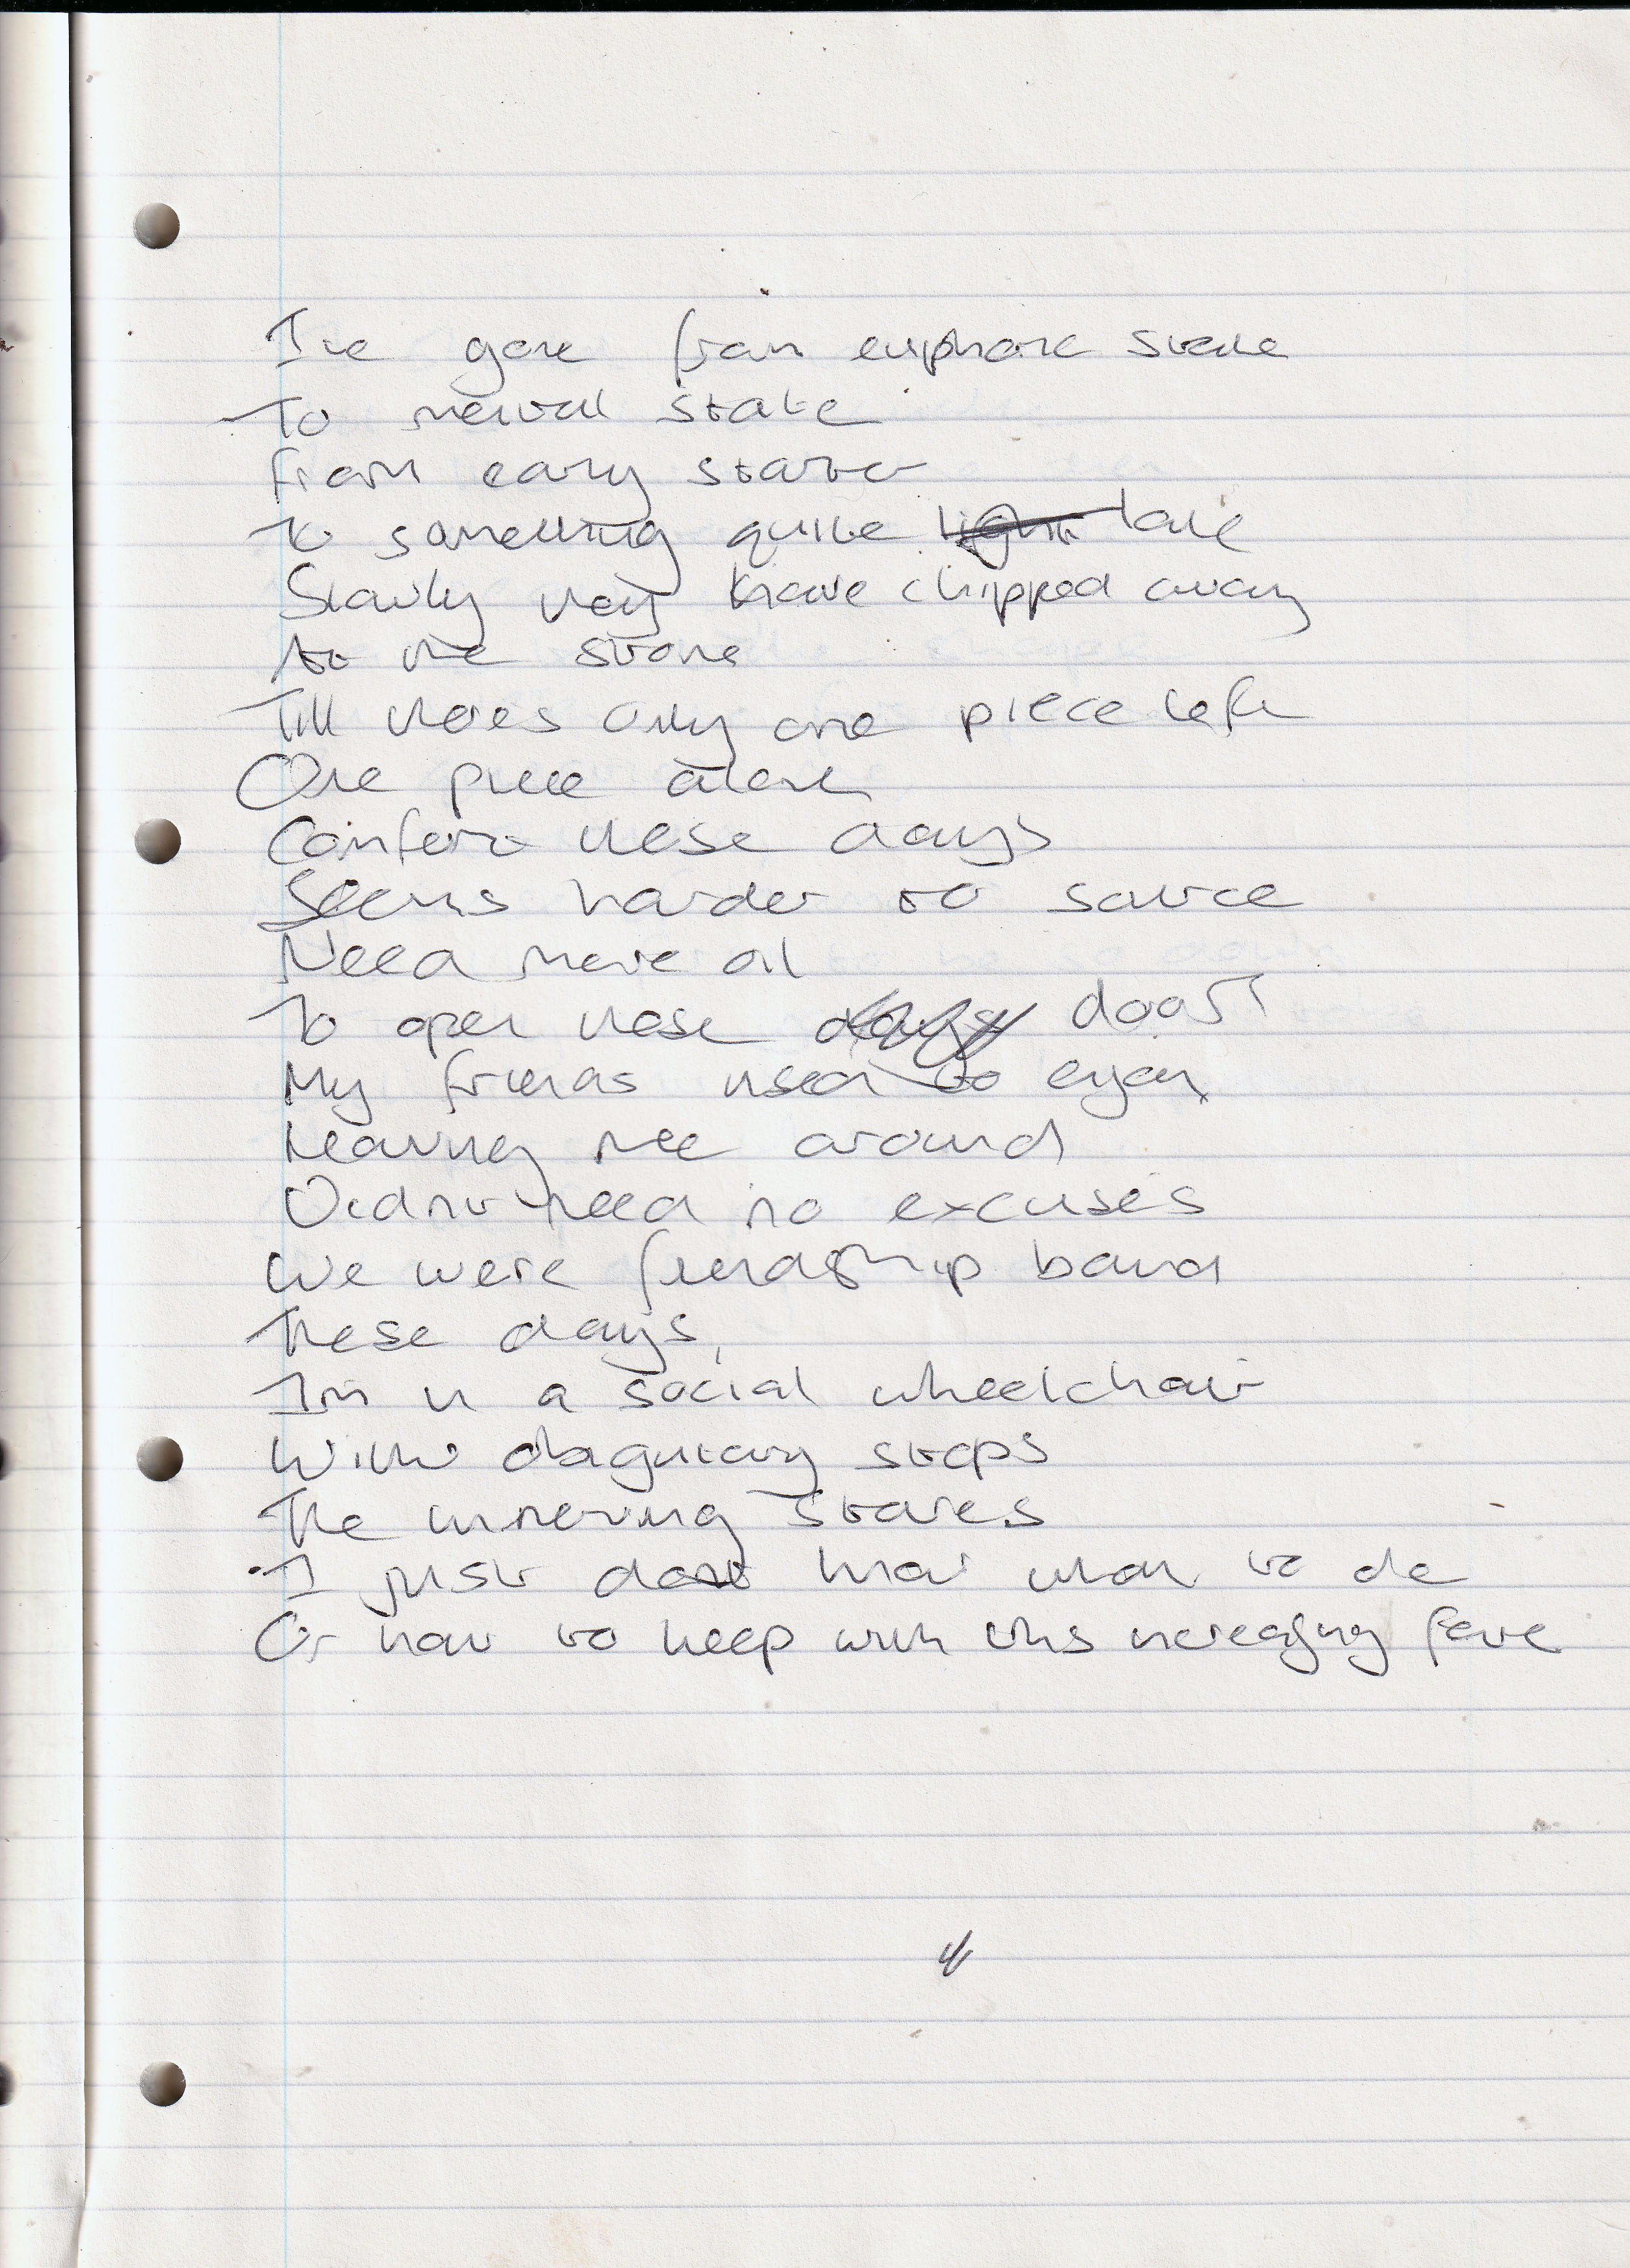 Ive gone from euphoric state
To neutral state
from early starter
To something quite light late
Slowly they have chipped away
to the stone
Till theres only one piece left
One piece alone
Comfort these days
Seems harder to source
Need more oil
To open these days doors
My friends used to enjoy
Having me around
Didnt need no excuses
We were friendship bound
These days,
Im in a social wheelchair
With steps
The unnerving stares
I just dont know what to do
Or how to keep with this increasing